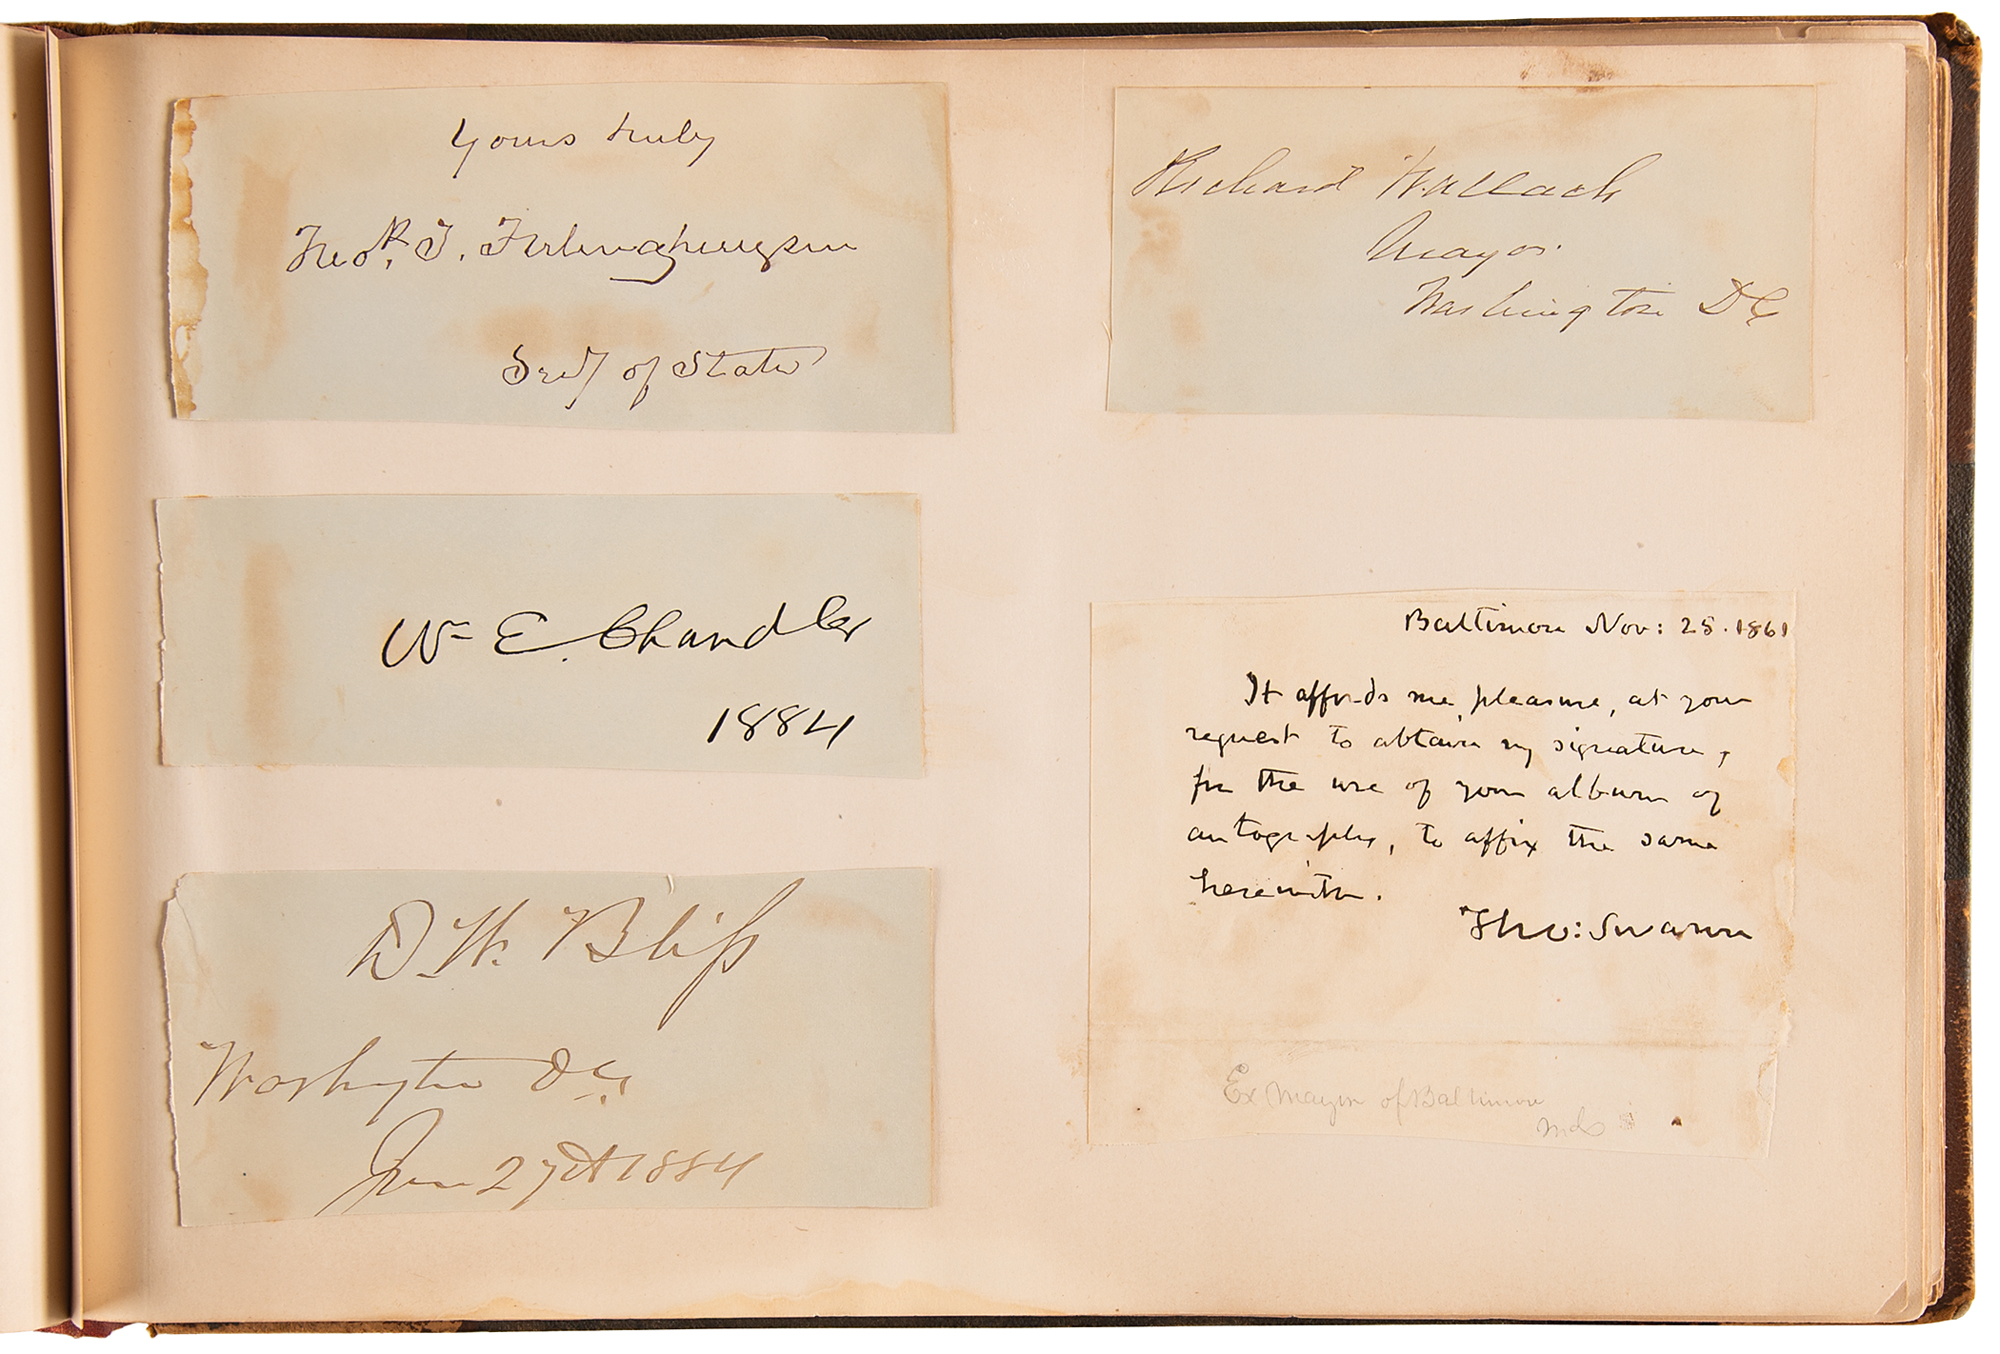 Yours truly
Fredk. T. Frelinghuysen
Secy of State
Wm E. Chandler
1884
D. W. Bliss
Washington D.C.
June 27th 1884
Richard Wallach
Mayor
Washington D C
Baltimore Nov: 25. 1861
It affords me pleasure, at your
request to obtain my signature,
for the use of your album of
autographs, to affix the same
herewith.
Tho: Swann
Ex Mayor of Baltimore
Md